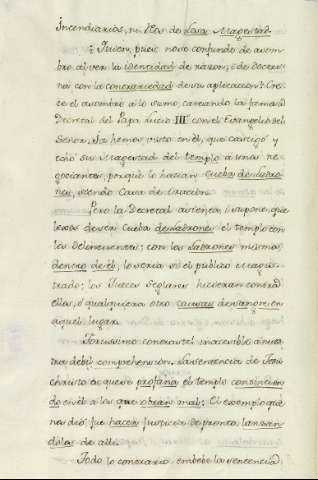 Incendiarios, ni Reos de Lesa Magestad.
¿Quien, pues no se confunde de asom-
bro al ver la identidad de razon, i de doctri-
na con la contrariedad de su aplicacion? Cre-
ce el asombro a lo sumo, careando la
Decretal del Papa Lucio III con el Evangelio del
Señor. Ya hemos visto en él, que castigó y
echó su Magestad del templo a unos ne-
gociantes, porque lo hacian Cueba de Ladro-
nes, siendo Casa de Oracion.
Pero la Decretal asienta, i supone, que
lexos de ser Cueba de ladrones el templo con
los delinquentes; con los Ladrones mismos
dentro de él, lo seria si el publico Magis-
trado; los Jueces Seglares hicieran contra
ellos, o qualquiera otro causas de sangre, en
aquel lugar.
Fortissimo contraste! inaccesible à nues-
tra debil comprehension. La sentencia de Jesu
christo es que se profana el templo consintien-
do en él a los que obran mal: El exemplo que
nos dió fue hacer justicia de pronto, lanzan-
dolos de alli.
Todo lo contrario embebe la sentencia